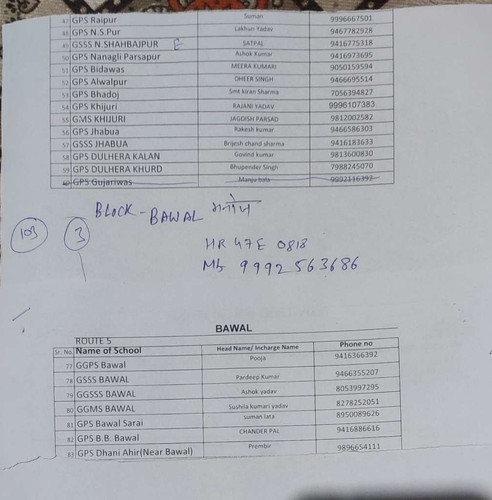 47 GPS Raipur Suman 9996667501
48 GPS N.S.Pur Lakhan Yadav 9467782928
49 GSSS N.SHAHBAJPUR E SATPAL 9416775318
50 GPS Nanagli Parsapur Ashok Kumar 9416973695
51 GPS Bidawas MEERA KUMARI 9050159594
52 GPS Alwalpur DHEER SINGH 9466695514
53 GPS Bhadoj Smt kiran Sharma 7056394827
54 GPS Khijuri RAJANI YADAV 9996107383
55 GMS KHIJURI JAGDISH PARSAD 9812002582
56 GPS Jhabua Rakesh kumar 9466586303
57 GSSS JHABUA Brijesh chand sharma 9416183633
58 GPS DULHERA KALAN Govind kumar 9813600830
59 GPS DULHERA KHURD Bhupender Singh 7988245070
60 GPS Gujariwas Manju bala 9992116392
BLOCK - BAWAL मनोज
103 3
HR 47E 0818
Mb 9992563686
BAWAL
ROUTE 5
Sr. No. Name of School Head Name/ Incharge Name Phone no
77 GGPS Bawal Pooja 9416366392
78 GSSS BAWAL Pardeep Kumar 9466355207
79 GGSSS BAWAL Ashok yadav 8053997295
80 GGMS BAWAL Sushila kumari yadav 8278252051
81 GPS Bawal Sarai suman lata 8950089626
82 GPS B.B. Bawal CHANDER PAL 9416886616
83 GPS Dhani Ahir(Near Bawal) Prembir 9896654111